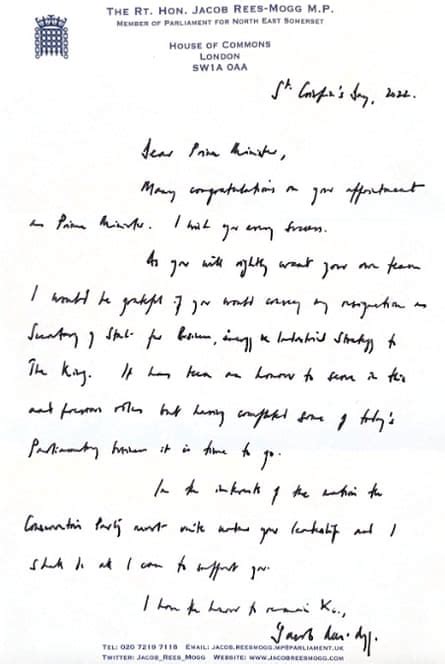 The Rt. Hon. Jacob Rees-Mogg M.P.
Member of Parliament for North East Somerset
House of Commons
London
SW1A 0AA
St. Crispin's Day, 2022.
Dear Prime Minister,
Many congratulations on your appointment
as Prime Minister. I wish you every success.
As you will rightly want your own team
I would be grateful if you would convey my resignation as
Secretary of State for Business, Energy & Industrial Strategy to
The King. It has been an honour to serve in this
and previous roles but having completed some of today's
Parliamentary business it is time to go.
In the interests of the nation the
Conservative Party must unite under your leadership and I
shall do all I can to support you.
I have the honour to remain &c.,
Jacob Rees-Mogg.
Tel: 020 7219 7118 Email: jacob.reesmogg.mp@parliament.uk
Twitter: Jacob_Rees_Mogg Website: www.jacobreesmogg.com